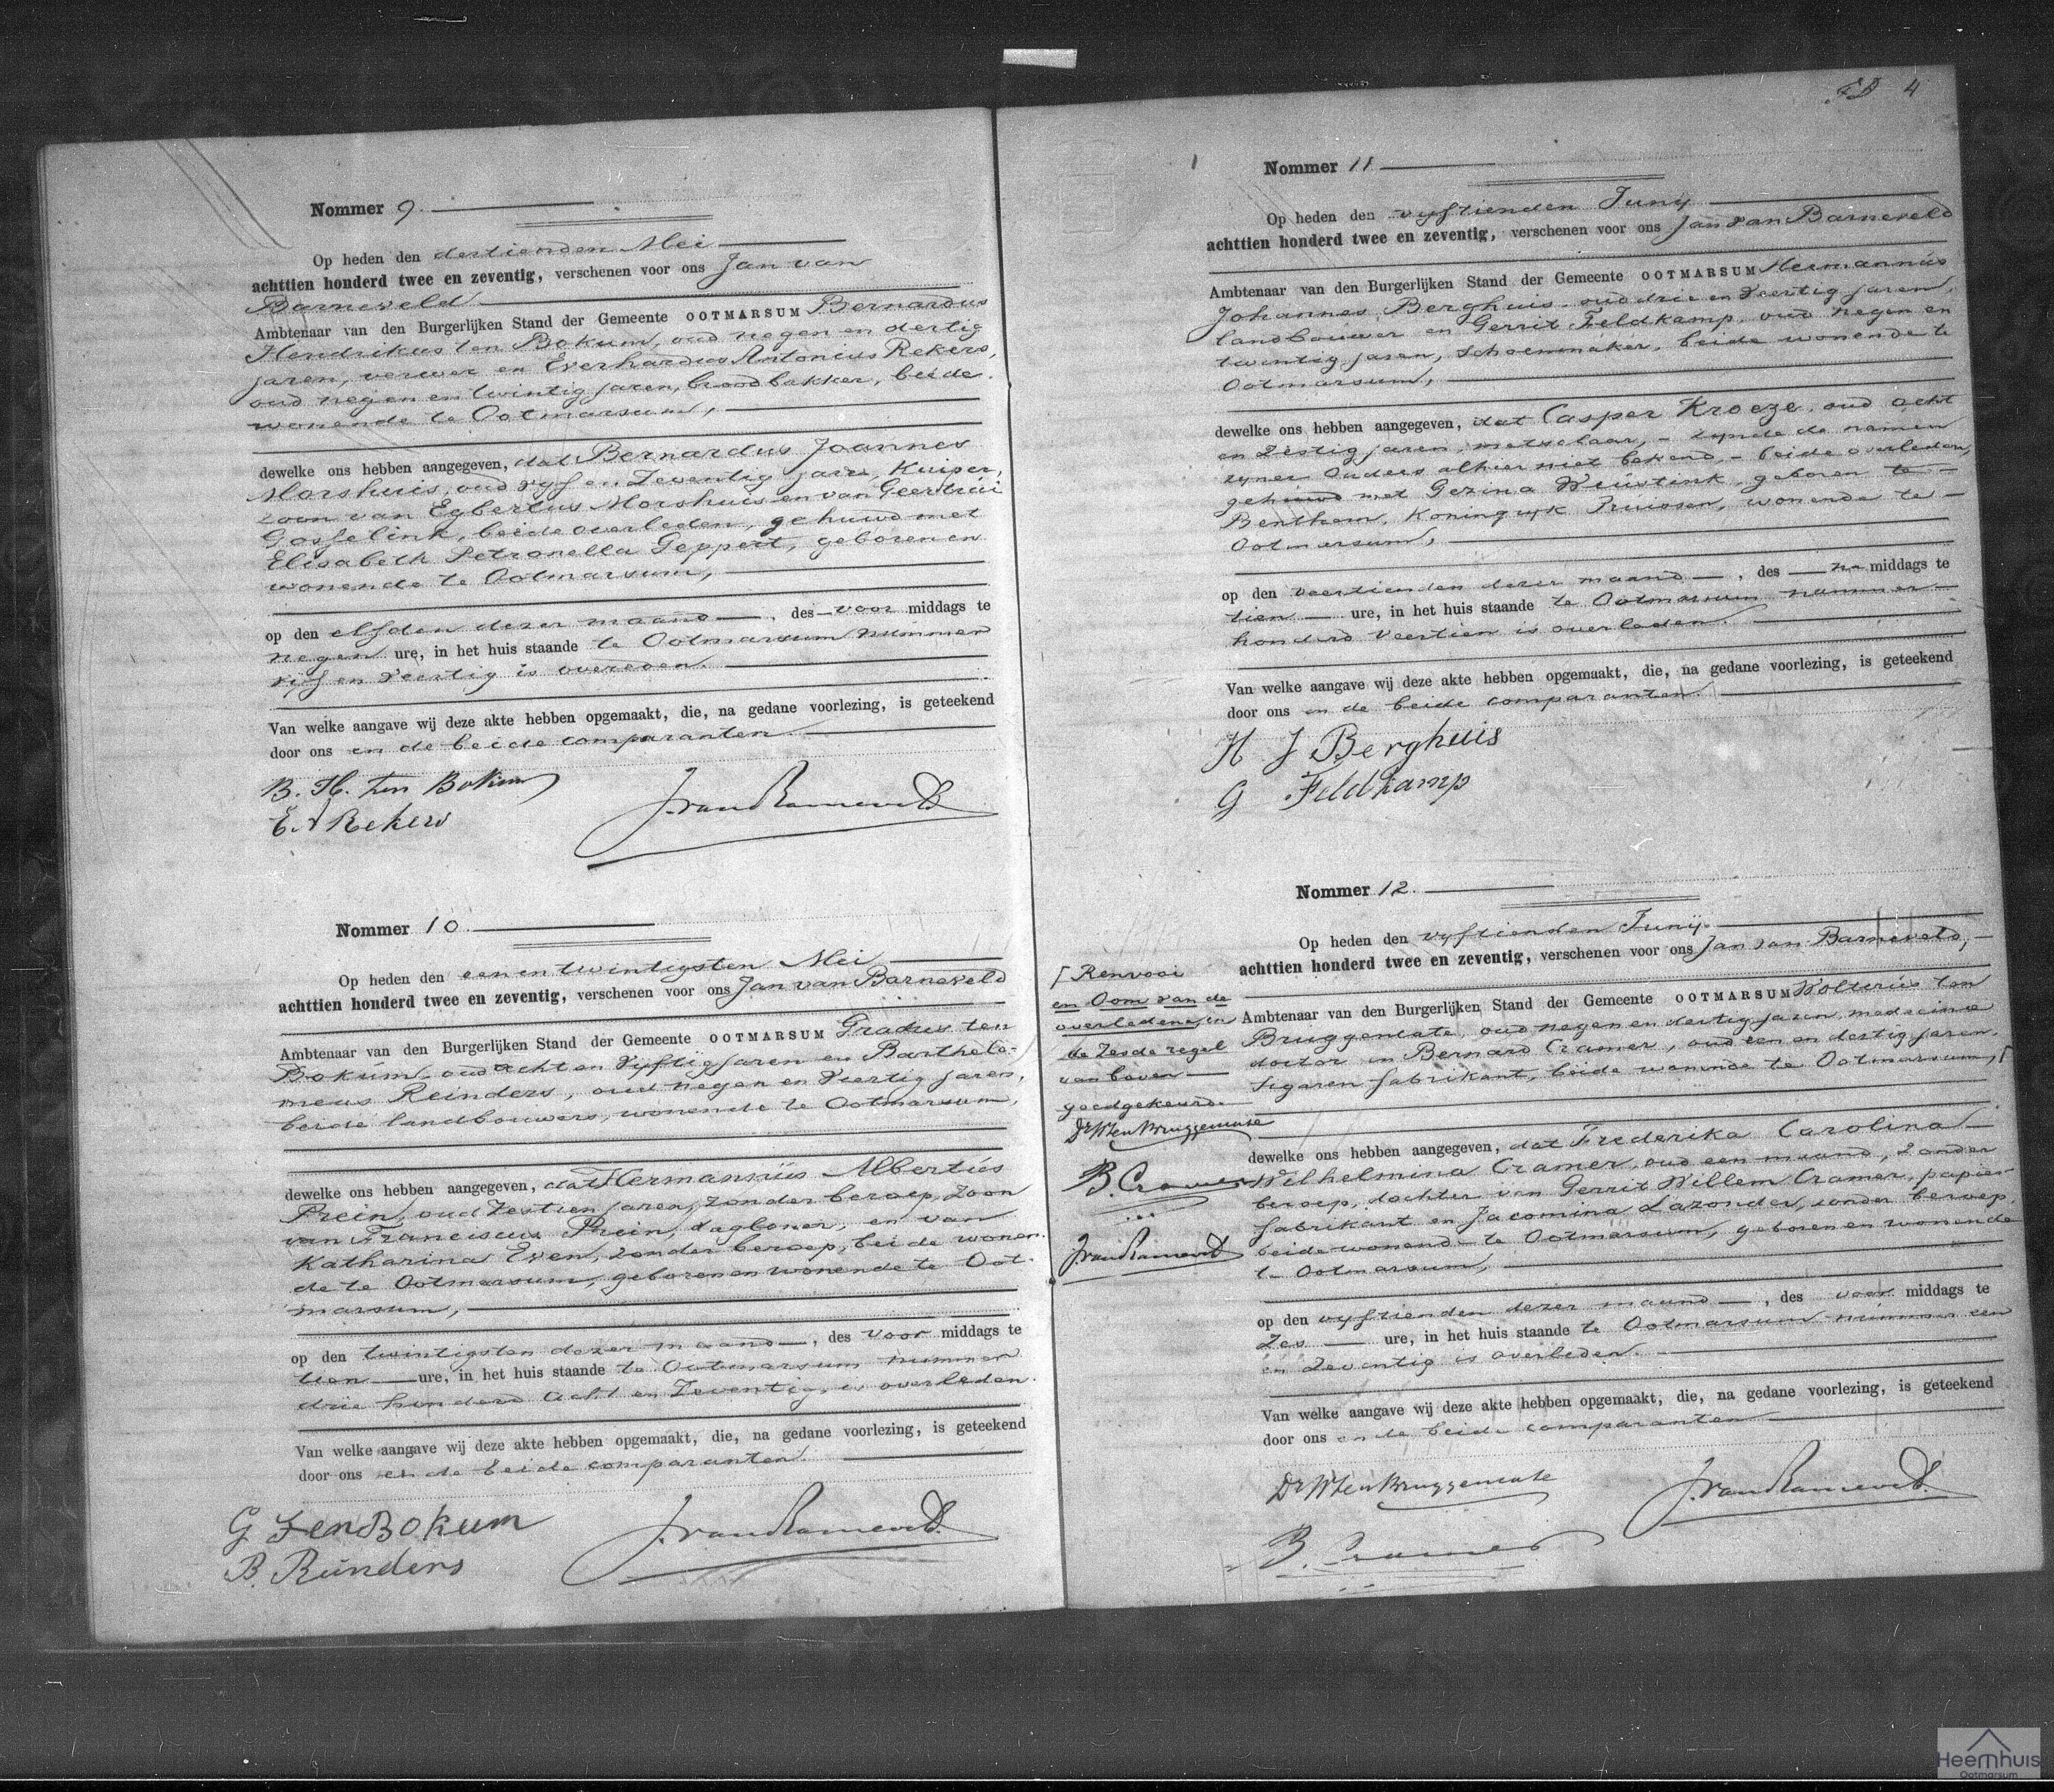 Nommer 9.
Op heden den dertienden Mei
achttien honderd twee en zeventig, verschenen voor ons Jan van
Barneveld
Ambtenaar van den Burgerlijken Stand der Gemeente OOTMARSUM Bernardus
Hendrikus ten Bokum, oud negen en dertig
jaren, verwer en Everhardus Antonius Rekers,
oud negen en twintig jaren, broodbakker, beide
wonende te Ootmarsum,
dewelke ons hebben aangegeven, dat Bernardus Joannes
Morshuis, oud vyf en Zeventig jaren, Kuiper,
zoon van Egbertus Morshuis en van Geertrui
Gosselink, beide overleden, gehuwd met
Elisabeth Petronella Geppert, geboren en
wonende te Ootmarsum,
op den elfden dezer maand, des voor middags te
negen ure, in het huis staande te Ootmarsum nummer
vijf en veertig is overleden.
Van welke aangave wij deze akte hebben opgemaakt, die, na gedane voorlezing, is geteekend
door ons en de beide comparanten.
B. H. ten Bokum
E A Rekers
J. van Barneveld
Nommer 10.
Op heden den een en twintigsten Mei
achttien honderd twee en zeventig, verschenen voor ons Jan van Barneveld
Ambtenaar van den Burgerlijken Stand der Gemeente OOTMARSUM Gradus ten
Bokum, oud acht en vyftig jaren en Barthelo-
meus Reinders, oud negen en veertig jaren,
beide landbouwers, wonende te Ootmarsum,
dewelke ons hebben aangegeven, dat Hermannus Albertus
Prein, oud Zestien jaren, zonder beroep, zoon
van Franciscus Prein, dagloner, en van
Katharina Even, zonder beroep, beide wonen-
de te Ootmarsum, geboren en wonende te Oot-
marsum,
op den twintigsten dezer maand, des voor middags te
tien ure, in het huis staande te Ootmarsum nummer
drie honderd acht en Zeventig is overleden.
Van welke aangave wij deze akte hebben opgemaakt, die, na gedane voorlezing, is geteekend
door ons en de beide comparanten.
G Ten Bokum
B. Reinders
J. van Barneveld
4
Nommer 11
Op heden den vyftienden Juny
achttien honderd twee en zeventig, verschenen voor ons Jan van Barneveld
Ambtenaar van den Burgerlijken Stand der Gemeente OOTMARSUM Hermannus
Johannes Berghuis, oud drie en veertig jaren,
landbouwer en Gerrit Feldkamp, oud negen en
twintig jaren, schoenmaker, beide wonende te
Ootmarsum,
dewelke ons hebben aangegeven, dat Casper Kroeze, oud acht
en Zestig jaren, metselaar, zynde de namen
zyner Ouders alhier niet bekend, beide overleden,
gehuwd met Gezina Weustink, geboren te
Benthem, Koningryk Pruissen, wonende te
Ootmarsum,
op den veertienden dezer maand, des na middags te
tien ure, in het huis staande te Ootmarsum nummer
honderd veertien is overleden.
Van welke aangave wij deze akte hebben opgemaakt, die, na gedane voorlezing, is geteekend
door ons en de beide comparanten.
H J Berghuis
G Feldkamp
Nommer 12.
Op heden den vyftienden Juny
achttien honderd twee en zeventig, verschenen voor ons Jan van Barneveld,
Ambtenaar van den Burgerlijken Stand der Gemeente OOTMARSUM Wolterus ten
Bruggencate, oud negen en dertig jaren, medecinae
doctor en Bernard Cramer, oud een en dertig jaren,
sigaren-fabrikant, beide wonende te Ootmarsum,
dewelke ons hebben aangegeven, dat Frederika Carolina
Wilhelmina Cramer, oud een maand, zonder
beroep, dochter van Gerrit Willem Cramer, papier
fabrikant en Jacomina Lazonder, zonder beroep,
beide wonende te Ootmarsum, geboren en wonende
te Ootmarsum,
op den vyftienden dezer maand, des voor middags te
Zes ure, in het huis staande te Ootmarsum nummer een
en Zeventig is overleden.
Van welke aangave wij deze akte hebben opgemaakt, die, na gedane voorlezing, is geteekend
door ons en de beide comparanten
Dr W ten Bruggencate
J. van Barneveld
B. Cramer
Renvooi
en Oom van de
overledene, in
de Zesde regel
van boven
goedgekeurd.
Dr W ten Bruggencate
B. Cramer
J. van Barneveld
Heemhuis
Ootmarsum